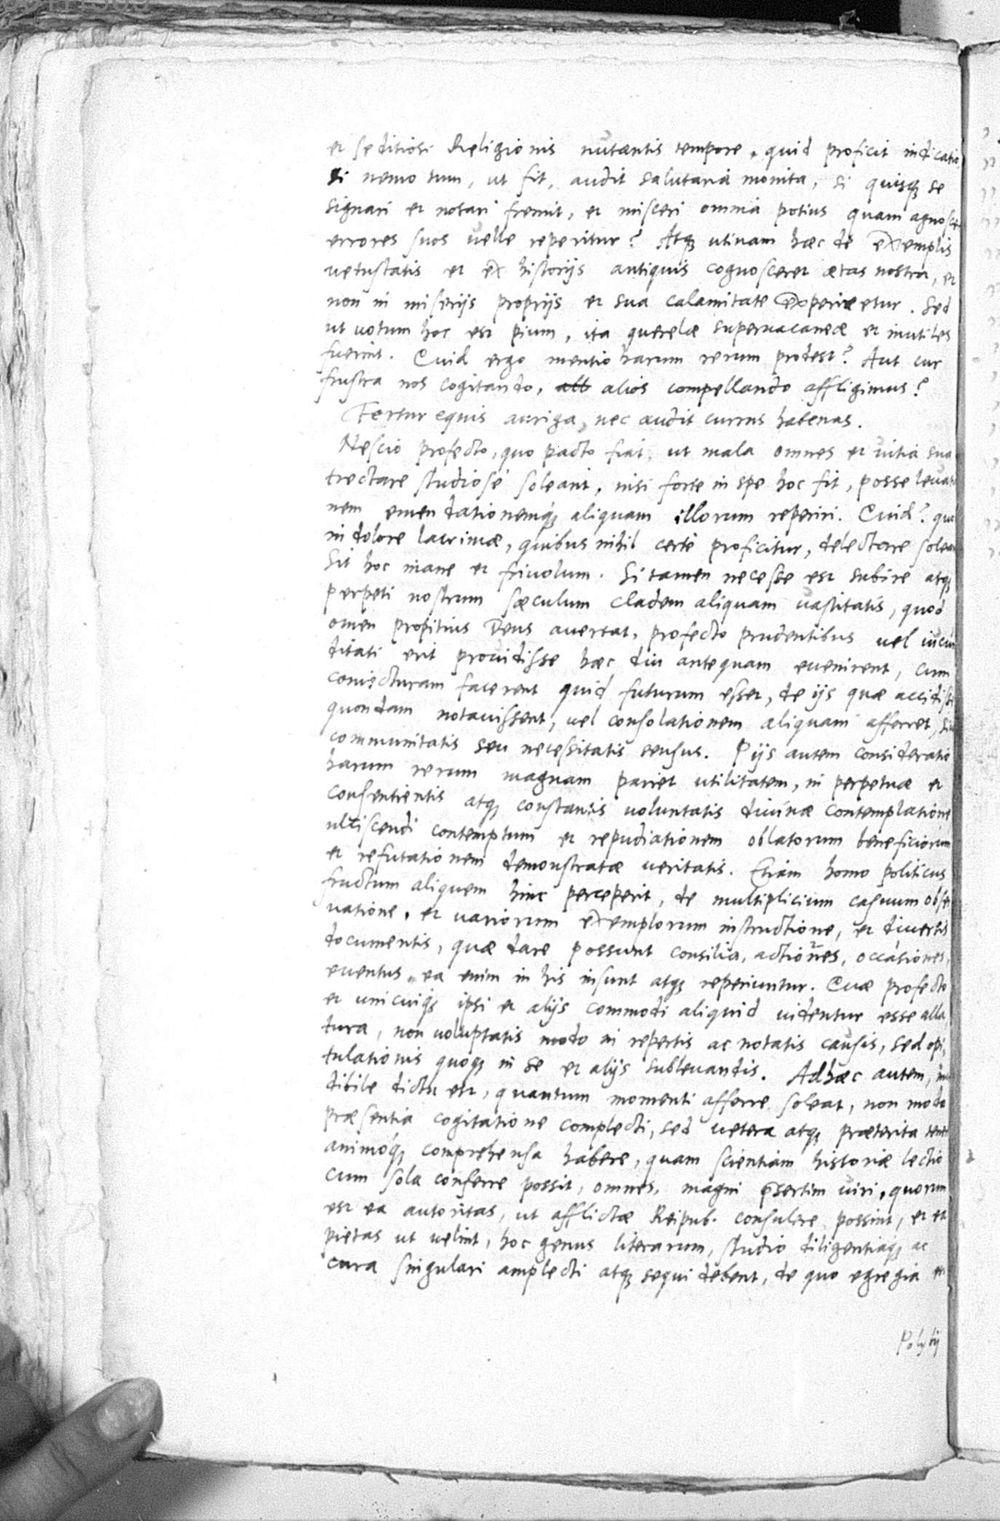 et seditiosi Religionis nutantis tempore, quid proficit indicatio,
si nemo tum, ut fit, audit salutaria monita, si quisq; se
signari et notari fremit, et misceri omnia potius quam agnosce
errores suos velle reperitur? Atq; utinam hæc de exemplis
vetustatis et ex historijs antiquis cognosceret ætas nostra, et
non in miserijs proprijs et sua calamitate experiretur. Sed
ut votum hoc est pium, ita querelæ supervacaneæ et inutiles
fuerint. Quid ergo mentio harum rerum prodest? Aut cur
frustra nos cogitando, alios compellando affligimus?
Fertur equis auriga, nec audit currus habenas.
Nescio profecto, quo pacto fiat, ut mala omnes et vitia sua
tractare studiose soleant, nisi forte in spe hoc fit, posse levati
nem emendationemq; aliquam illorum reperiri. Quid? qua
in dolore lacrimæ, quibus nihil certe proficitur, delectare solean
Sit hoc inane et frivolum. Si tamen necesse est subire atq;
perpeti nostrum sæculum cladem aliquam vastitatis, quod
omen propitius Deus avertat, profecto prudentibus vel iucun
ditati erit providisse hæc diu antequam evenirent, cum
coniecturam facerent quid futurum esset, de ijs quæ accidiss
quondam notavissent, vel consolationem aliquam afferret,
communitatis seu necessitatis sensus. Pijs autem consideratio
harum rerum magnam pariet utilitatem, in perpetuæ et
consentientis atq; constantis voluntatis divinæ contemplatione
ulciscendi contemptum et repudiationem oblatorum beneficiorum
et refutationem demonstratæ veritatis. Etiam homo politicus
fructum aliquem hinc perceperit, de multiplicium casuum obser
vatione, et variorum exemplorum instructione, et diversis
documentis, quæ dare possunt consilia, actiones, occasiones,
eventus, ea enim in his insunt atq; reperiuntur. Quæ profecto
et unicuiq; ipsi et alijs commodi aliquid videntur esse alla
tura, non voluptatis modo in repertis ac notatis causis, sed opi,
tulationis quoq; in se et alijs sublevandis. Adhæc autem,
dibile dictu est, quantum momenti afferre soleat, non modo
præsentia cogitatione complecti, sed vetera atq; præterita tene
animoq; comprehensa habere, quam scientiam historiæ lectio
cum sola conferre possit, omnes, magni p̄sertim viri, quorum
est ea autoritas, ut afflictæ Reipub. consulere possint, et ea
pietas ut velint, hoc genus literarum, studio diligentiaq; ac
cura singulari amplecti atq; sequi debent, de quo egregia
Polybij